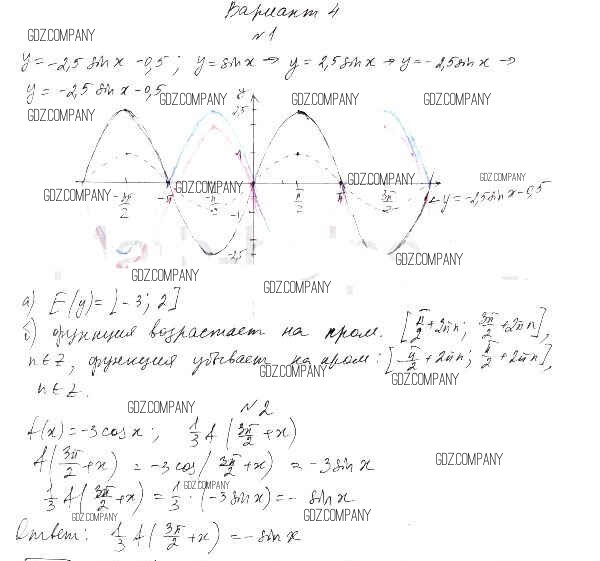 Вариант 4
GDZ.COMPANY
№1
y = -2,5 sin x - 0,5; y = sin x → y = 2,5 sin x → y = -2,5 sin x →
y = -2,5 sin x - 0,5
GDZ.COMPANY GDZ.COMPANY GDZ.COMPANY
GDZ.COMPANY
y
2,5
1
GDZ.COMPANY
GDZ.COMPANY -3π/2 -π -π/2 GDZ.COMPANY π/2 π 3π/2 y = -2,5 sin x - 0,5
-1
-2,5
GDZ.COMPANY GDZ.COMPANY
а) E(y) = [-3; 2]
б) функция возрастает на пром. [π/2 + 2πn; 3π/2 + 2πn],
n ∈ Z, функция убывает на пром: [-π/2 + 2πn; π/2 + 2πn],
GDZ.COMPANY GDZ.COMPANY
n ∈ Z.
GDZ.COMPANY
№2
f(x) = -3 cos x; 1/3 f(3π/2 + x)
f(3π/2 + x) = -3 cos(3π/2 + x) = -3 sin x
GDZ.COMPANY
GDZ.COMPANY
1/3 f(3π/2 + x) = 1/3 · (-3 sin x) = - sin x
GDZ.COMPANY GDZ.COMPANY
Ответ: 1/3 f(3π/2 + x) = - sin x